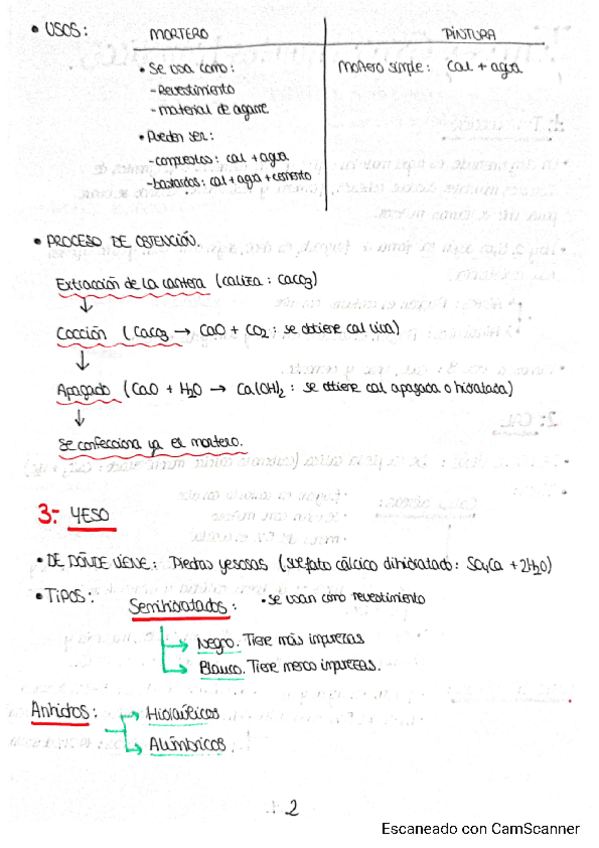 • USOS:
MORTERO
PINTURA
• Se usa como:
- Revestimiento
- material de agarre
• Pueden ser:
- compuestos: cal + agua
- bastardos: cal + agua + cemento
Mortero simple: cal + agua
• PROCESO DE OBTENCIÓN.
Extracción de la cantera (caliza: CaCO3)
↓
Cocción (CaCO3 → CaO + CO2: se obtiene cal viva)
↓
Apagado (CaO + H2O → Ca(OH)2: se obtiene cal apagada o hidratada)
↓
Se confecciona ya el mortero.
3.- YESO
• DE DÓNDE VIENE: Piedras yesosas (sulfato cálcico dihidratado: SO4Ca + 2H2O)
• TIPOS:
Semihidratados: • se usan como revestimiento
→ Negro. Tiene más impurezas
→ Blanco. Tiene menos impurezas.
Anhidros:
→ Hidráulicos
→ Alúmbricos
2
Escaneado con CamScanner